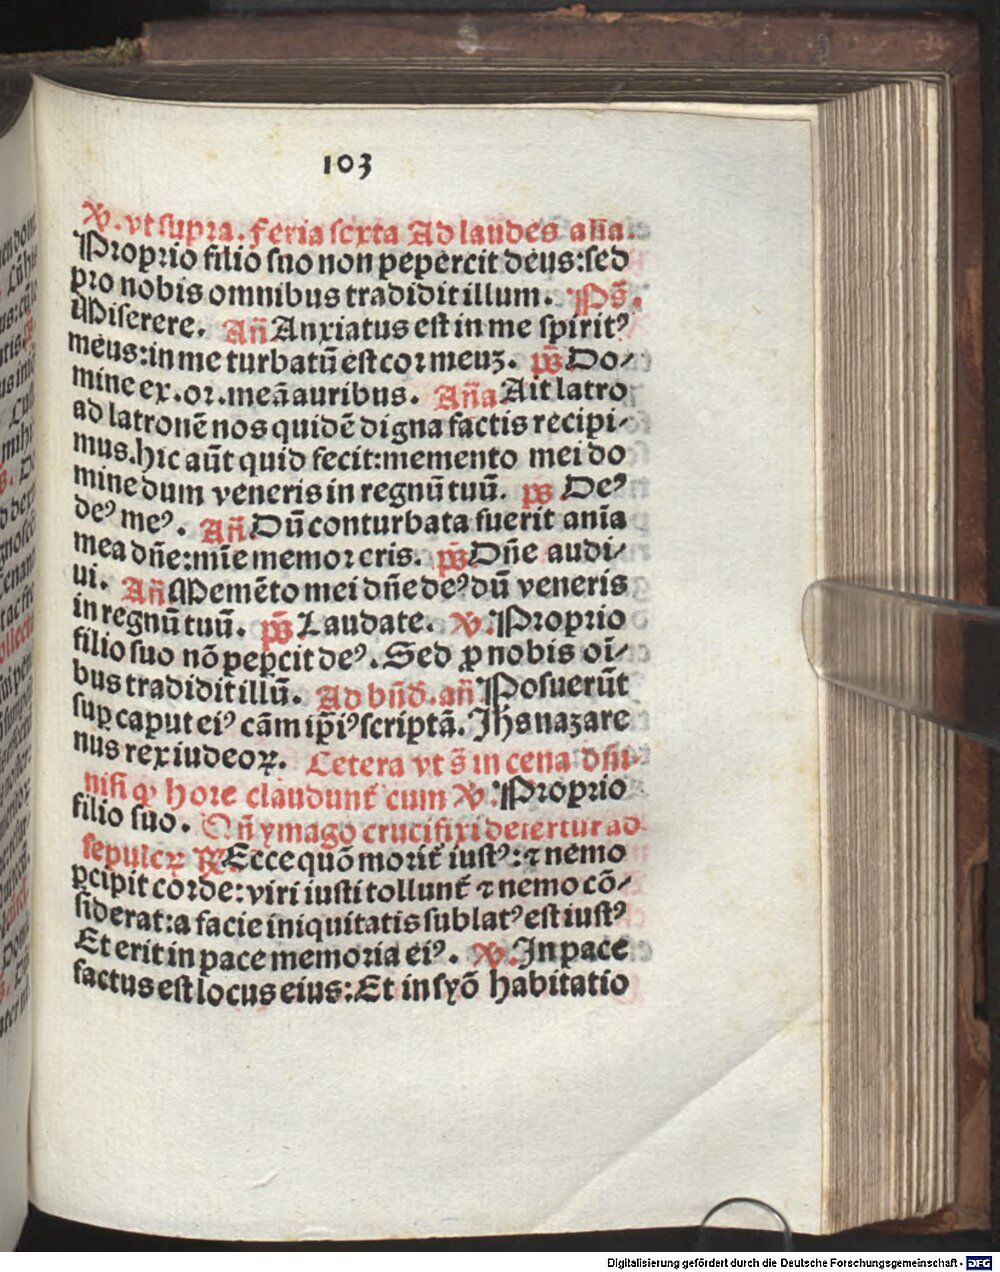 103
℣. vt supra. Feria sexta Ad laudes añа.
Proprio filio suo non pepercit deus: sed
pro nobis omnibus tradidit illum. Ps̄.
Miserere. Añ Anxiatus est in me spiritꝰ
meus: in me turbatū est cor meuꝫ. ps̄ Do⸗
mine ex. or. meā auribus. Aña Ait latro
ad latronē nos quidē digna factis recipi⸗
mus. hic aūt quid fecit: memento mei do
mine dum veneris in regnū tuū. ps Deꝰ
deꝰ meꝰ. Añ Dū conturbata fuerit anīa
mea dñe: mīe memor eris. ps̄ Dñe audi⸗
ui. Añ Memēto mei dñe deꝰ dū veneris
in regnū tuū. ps̄ Laudate. ℣. Proprio
filio suo nō peꝑcit deꝰ. Sed ꝓ nobis oī⸗
bus tradidit illū. Ad bñd̄. añ Posuerūt
suꝑ caput eiꝰ cām ip̄iꝰ scriptā. Jhs nazare
nus rex iudeoꝝ. Cetera vt s̄ in cena dñi.
nisi ꝙ hore claudunt̄ cum ℣. Proprio
filio suo. Qñ ymago crucifixi defertur ad
sepulcꝝ ℟. Ecce quō morit̄ iustꝰ: ⁊ nemo
ꝑcipit corde: viri iusti tollunt̄ ⁊ nemo cō⸗
siderat: a facie iniquitatis sublatꝰ est iustꝰ
Et erit in pace memoria eiꝰ. ℣. In pace
factus est locus eius: Et in syō habitatio
Digitalisierung gefördert durch die Deutsche Forschungsgemeinschaft - DFG